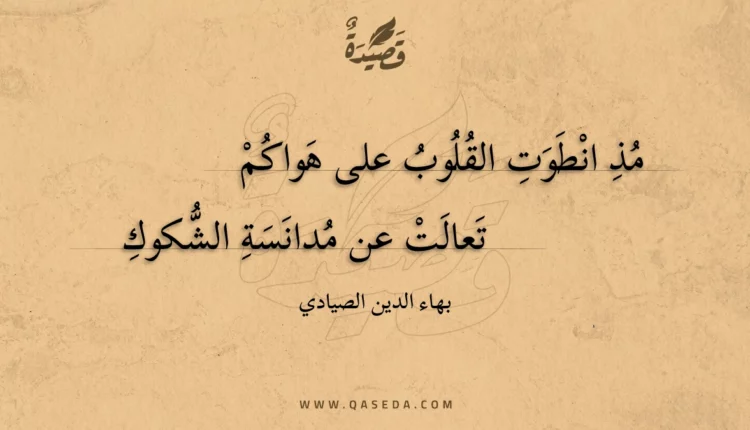 قَصِيْدَةٌ
مُذِ انْطَوَتِ القُلُوبُ على هَواكُمْ
تَعالَتْ عن مُدانَسَةِ الشُّكوكِ
بهاء الدين الصيادي
WWW.QASEDA.COM